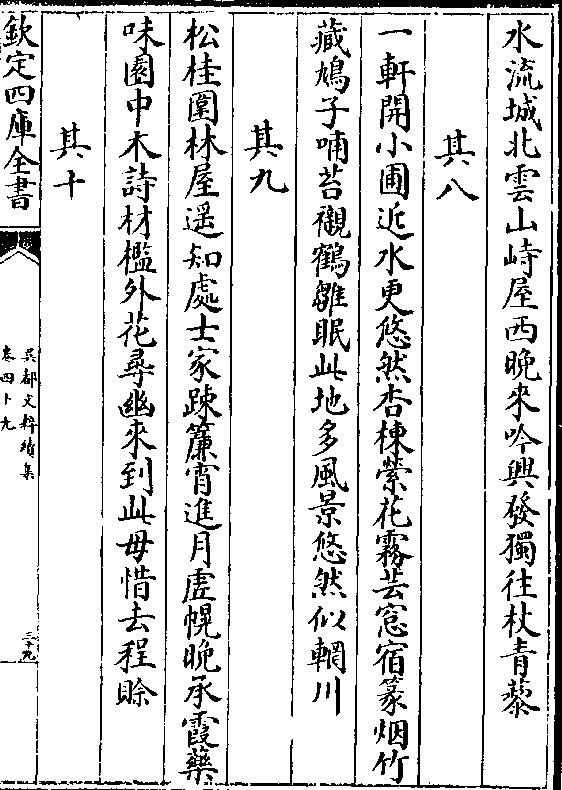 水流城北雲山峙屋西晚來吟興發獨往杖青藜
其八
一軒開小圃近水更悠然杏棟縈花霧芸窓宿篆烟竹
藏鳩子哺苔襯鶴雛眠此地多風景悠然似輞川
其九
松桂圍林屋遥知處士家疎簾宵進月虛幌晚承霞藥
味園中木詩材檻外花尋幽來到此毋惜去程賒
其十
欽定四庫全書
吳都文粹續集
卷四十九
三十九